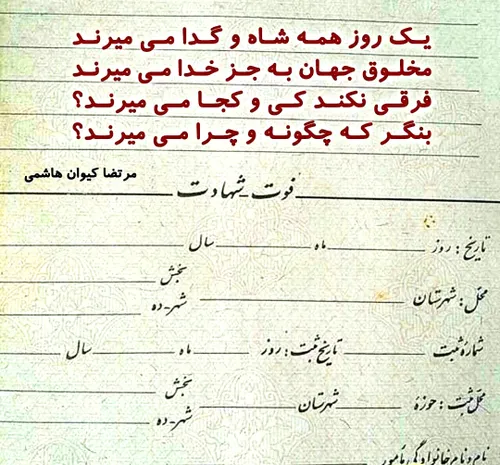 یک روز همه شاه و گدا می میرند
مخلوق جهان به جز خدا می میرند
فرقی نکند کی و کجا می میرند؟
بنگر که چگونه و چرا می میرند؟
مرتضا کیوان هاشمی
فوت - شهادت
تاریخ : روز ماه سال
محل : شهرستان بخش
شهر - ده
شماره ثبت تاریخ ثبت : روز ماه سال
محل ثبت : حوزه شهرستان بخش
شهر - ده
نام و نام خانوادگی مأمور